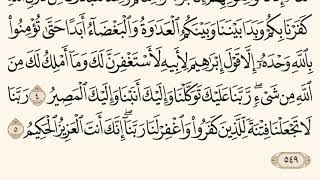 كَفَرْنَا بِكُمْ وَبَدَا بَيْنَنَا وَبَيْنَكُمُ ٱلْعَدَٰوَةُ وَٱلْبَغْضَآءُ أَبَدًا حَتَّىٰ تُؤْمِنُوا۟
بِٱللَّهِ وَحْدَهُۥٓ إِلَّا قَوْلَ إِبْرَٰهِيمَ لِأَبِيهِ لَأَسْتَغْفِرَنَّ لَكَ وَمَآ أَمْلِكُ لَكَ مِنَ
ٱللَّهِ مِن شَىْءٍ ۖ رَّبَّنَا عَلَيْكَ تَوَكَّلْنَا وَإِلَيْكَ أَنَبْنَا وَإِلَيْكَ ٱلْمَصِيرُ ٤ رَبَّنَا
لَا تَجْعَلْنَا فِتْنَةً لِّلَّذِينَ كَفَرُوا۟ وَٱغْفِرْ لَنَا رَبَّنَآ ۖ إِنَّكَ أَنتَ ٱلْعَزِيزُ ٱلْحَكِيمُ ٥
٥٤٩